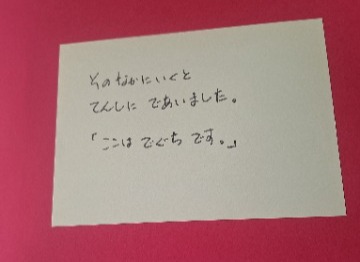 そのなかにいくと
てんしに であいました。
「ここは でぐち です。」